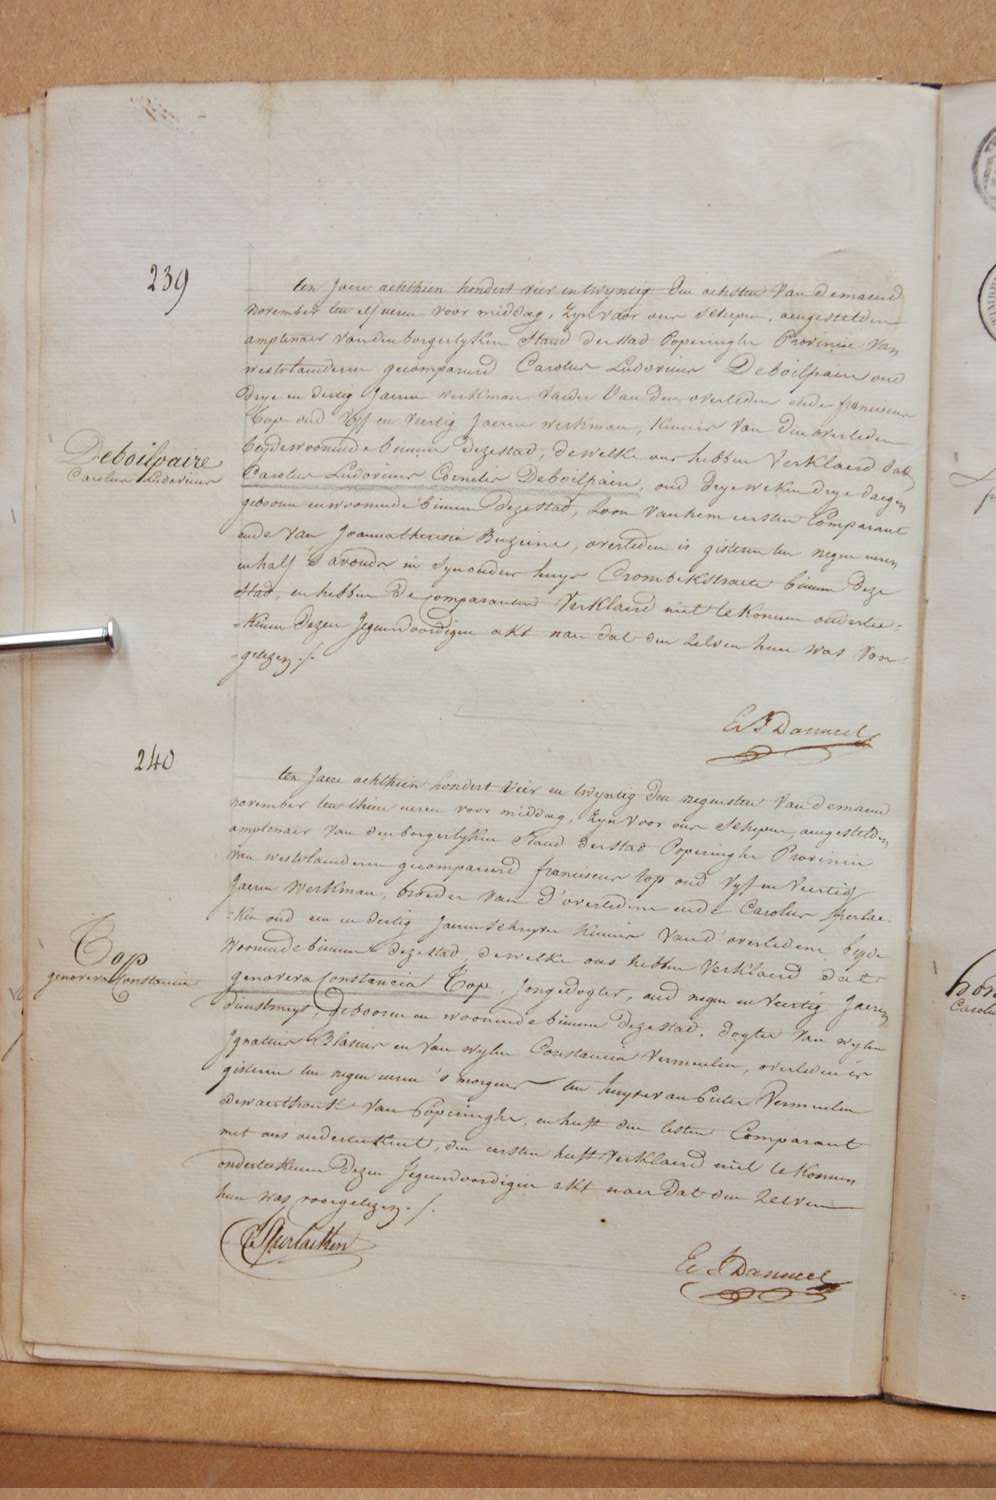 239
ten Jaere achthien hondert vier en twyntig den achsten Van demaend
november ten elf ueren voor middag, Zyn voor ons Schepen, aengestelden
amptenaer vanden borgerlyken Staud der stad Poperinghe Provincie Van
westvlaenderen gecompareerd Carolus Ludovicus Deboilpaire oud
drye en dertig Jaeren werkman Vader Van den overleden ende franciscus
Top oud Vyf en Veertig Jaeren werkman, Kennis Van den overleden
beyde woonende binnen dezestad, dewelke ons hebben Verklaerd dat
Deboilpaire
Carolus Ludovicus
Carolus Ludovicus Cornelis Deboilpaire, oud drye weken drye daegen
geboren en woonende binnen dezestad, Zoon van hem eersten Comparant
ende van Joanna theresia, overleden is gisteren ten negen ueren
en half s'avonds in Syn ouders huys Crombekstraete binnen deze
Stad, en hebben de comparanten Verklaerd niet te Konnen ondertee=
=kenen Dezen Jegenwoordigen akt naer dat den zelven hun was Voor
=gelezen ./.
E J Danneel
240
ten Jaere achthien hondert vier en twyntig den negensten Van demaend
november ten thien ueren voor middag, Zyn Voor ons Schepen, aengestelden
amptenaer Van den borgerlyken Staud der stad Poperinghe Provincie
Van westvlaenderen gecompareerd franciscus top oud Vyf en Veertig
Jaeren Werkman, broeder Van d'overledene ende Carolus
=ken oud een en dertig Jaeren Schryver Kennis Van d'overledene, beyde
Woonende binnen dezestad, dewelke ons hebben Verklaerd dat
Top
genoveva Constancia
genoveva Constancia Top, Jongedogter, oud negen en Veertig Jaeren
dienstmeyt, Geboren en woonende binnen dezestad, dogter Van wylen
Ignatius Blasius en Van wylen Constancia Vermeulen, overleden is
gisteren ten negen ueren 's morgens ten huyse van Pieter Vermeulen
Van Poperinghe, en heeft den lesten Comparant
met ons onderteekent, den eersten heeft Verklaerd niet te Konnen
onderteekenen Dezen Jegenwoordigen akt naer Dat den Zelven
hun was voorgelezen ./.
E J Danneel